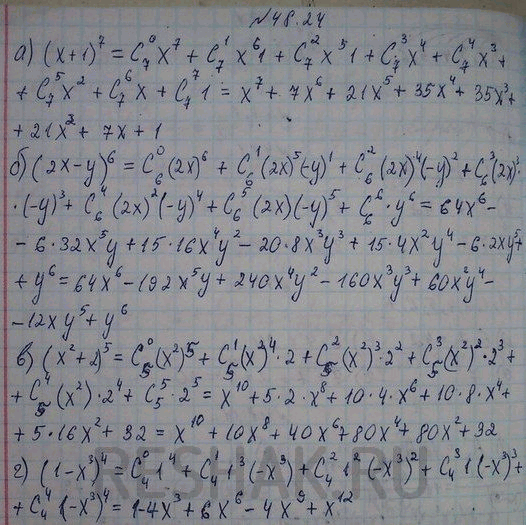 №48.24
а) (x+1)⁷ = C₇⁰x⁷ + C₇¹x⁶1 + C₇²x⁵1 + C₇³x⁴ + C₇⁴x³ +
+ C₇⁵x² + C₇⁶x + C₇⁷1 = x⁷ + 7x⁶ + 21x⁵ + 35x⁴ + 35x³ +
+ 21x² + 7x + 1
б) (2x-y)⁶ = C₆⁰(2x)⁶ + C₆¹(2x)⁵(-y)¹ + C₆²(2x)⁴(-y)² + C₆³(2x)³·
·(-y)³ + C₆⁴(2x)²(-y)⁴ + C₆⁵(2x)(-y)⁵ + C₆⁶·y⁶ = 64x⁶ -
- 6·32x⁵y + 15·16x⁴y² - 20·8x³y³ + 15·4x²y⁴ - 6·2xy⁵ +
+ y⁶ = 64x⁶ - 192x⁵y + 240x⁴y² - 160x³y³ + 60x²y⁴ -
- 12xy⁵ + y⁶
в) (x²+2)⁵ = C₅⁰(x²)5 + C₅¹(x²)⁴·2 + C₅²(x²)³·2² + C₅³(x²)²·2³ +
+ C₅⁴(x²)·2⁴ + C₅⁵·2⁵ = x¹⁰ + 5·2·x⁸ + 10·4·x⁶ + 10·8·x⁴ +
+ 5·16x² + 32 = x¹⁰ + 10x⁸ + 40x⁶ + 80x⁴ + 80x² + 32
г) (1-x³)⁴ = C₄⁰1⁴ + C₄¹1³(-x³) + C₄²1²(-x³)² + C₄³1(-x³)³ +
+ C₄⁴(-x³)⁴ = 1 - 4x³ + 6x⁶ - 4x⁹ + x¹²
RESHAK.RU